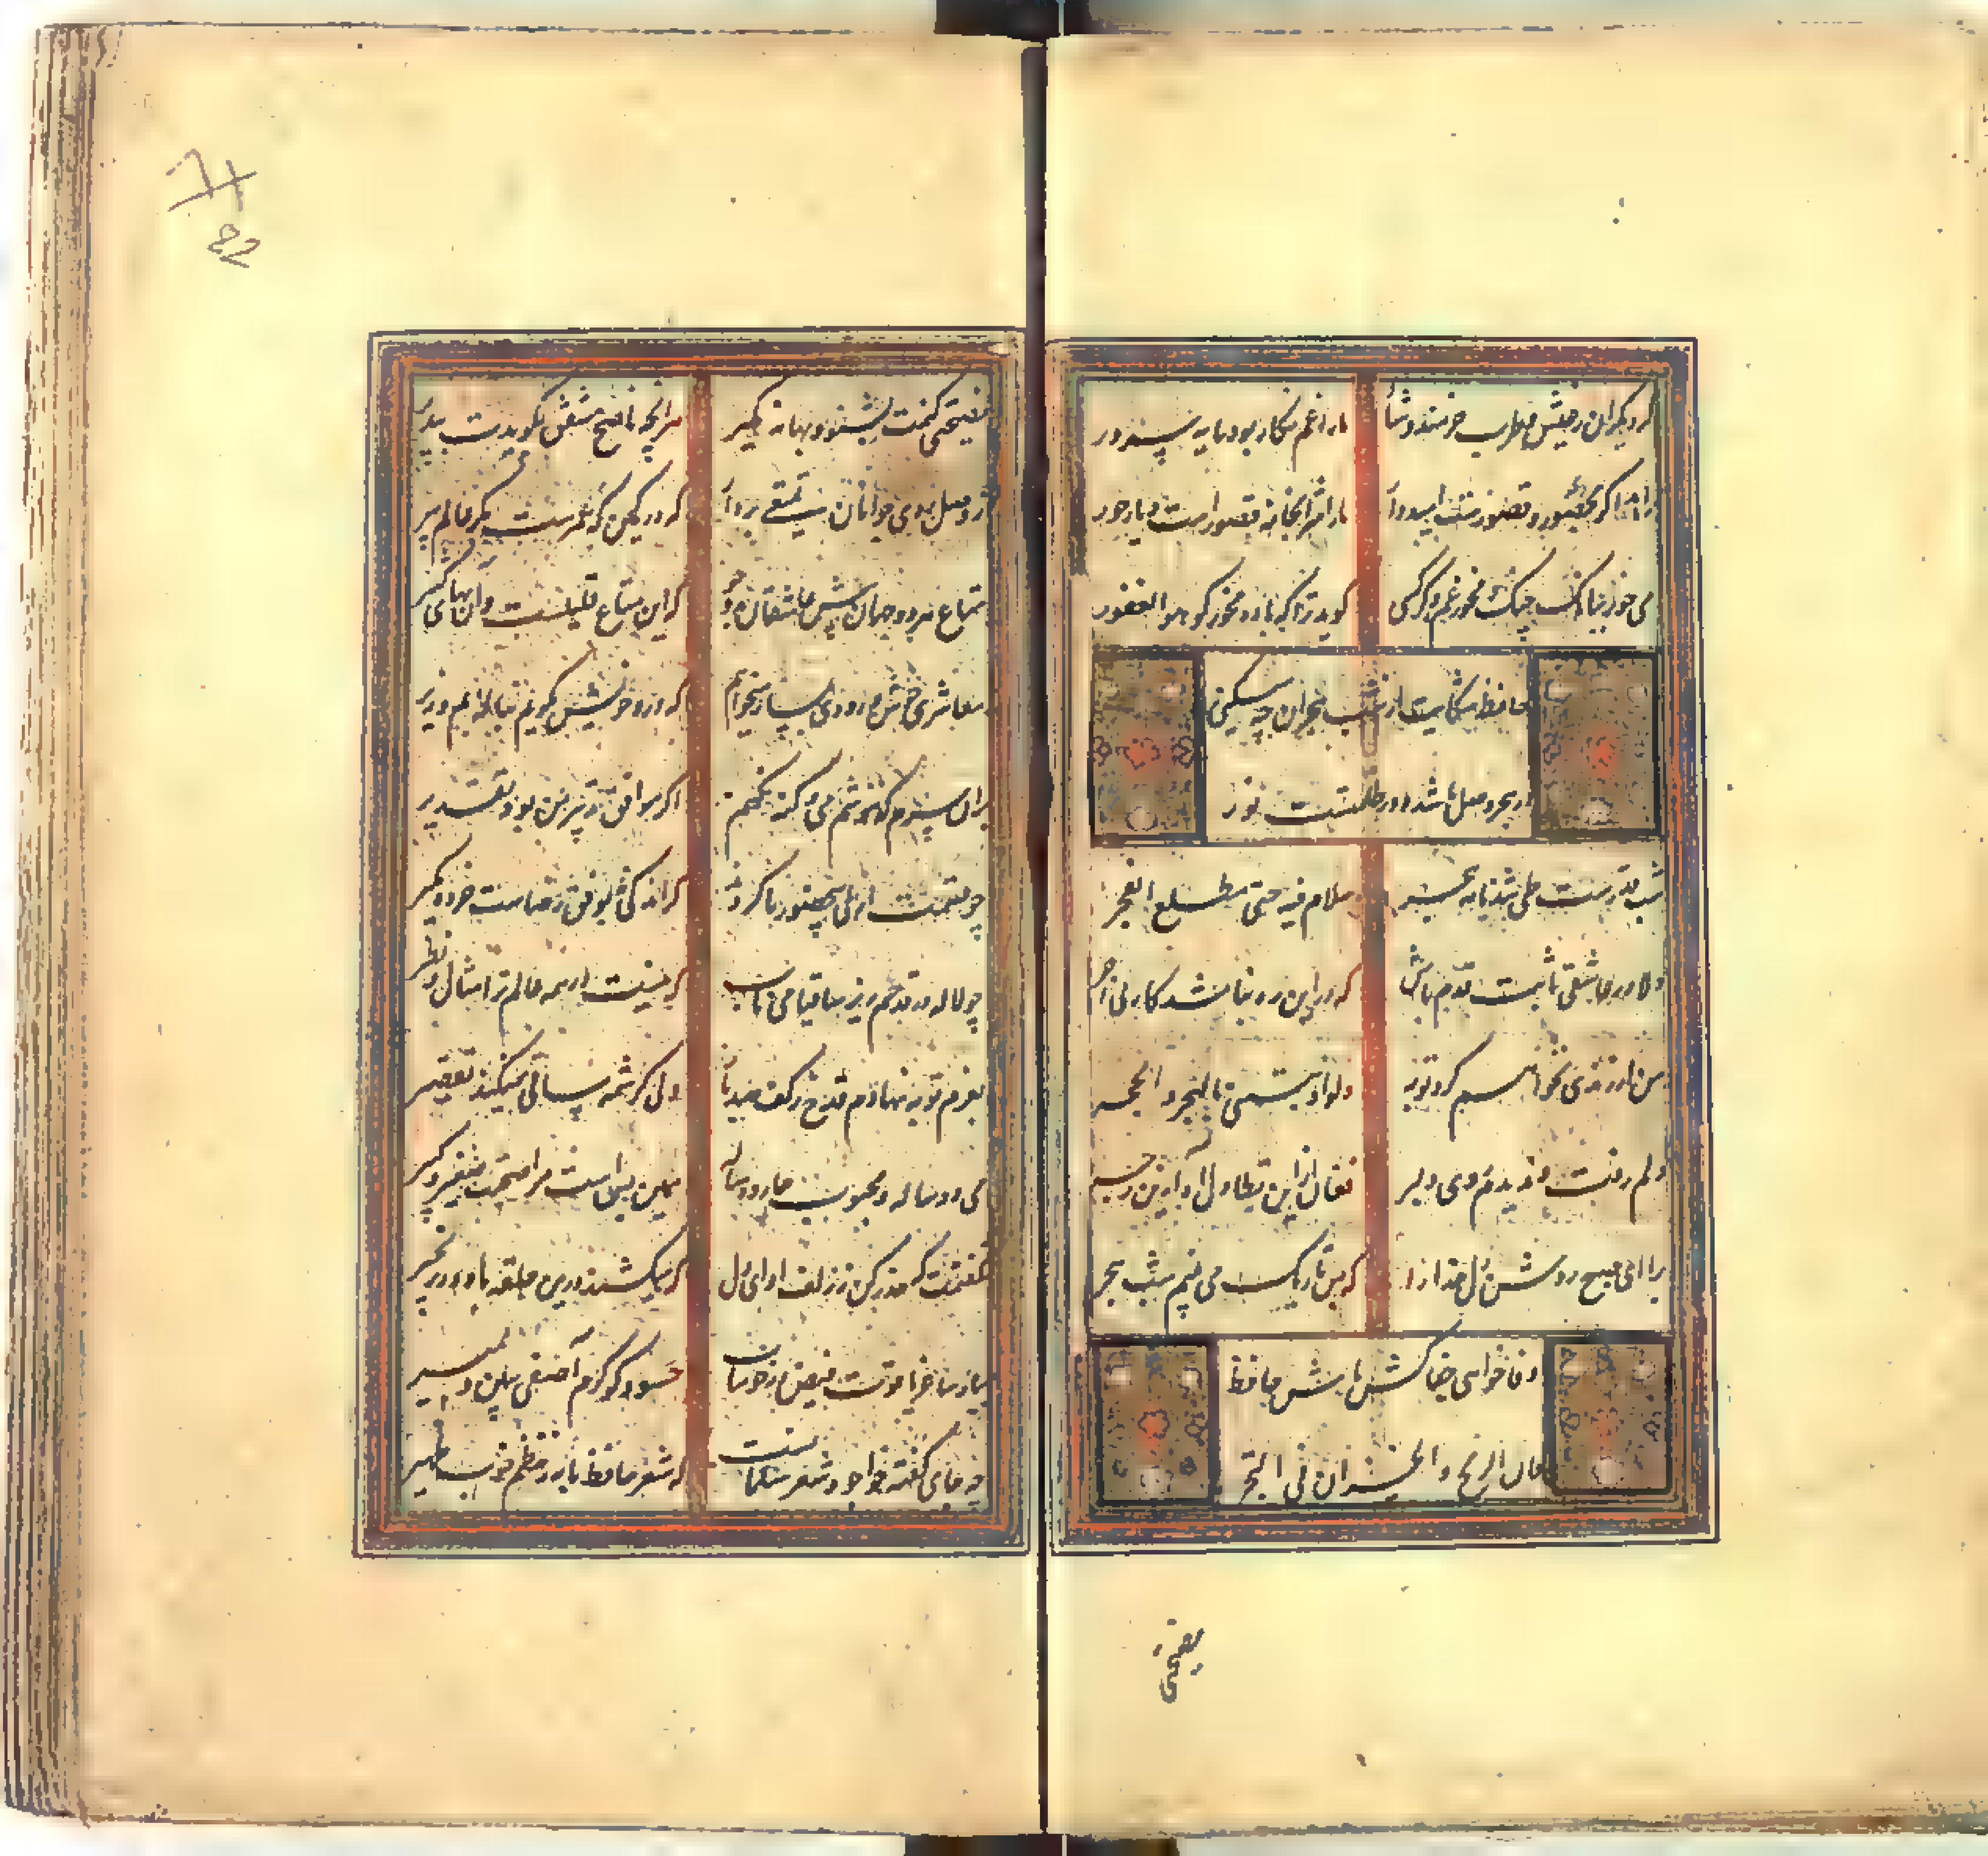 گر دیگران بعیش و طرب خرمند و شاد
ما را غم نگار بود مایه سرور
زاهد اگر بحور و قصورست امیدوار
ما را شرابخانه قصورست و یار حور
می خور ببانک چنک و مخور غم ور کسی
کوید ترا که باده مخور کو هو الغفور
حافظ شکایت از شب هجران چه میکنی
در هجر وصل باشد و در ظلمتست نور
شب قدرست و طی شد نامه هجر
سلام فیه حتی مطلع الفجر
دلا در عاشقی ثابت قدم باش
که در این ره نباشد کار بی اجر
من از رندی نخواهم کرد توبه
ولو آذیتنی بالهجر و الحجر
دلم رفت و ندیدم روی دلبر
فغان از این تطاول آه از این زجر
برا ای صبح روشن دل خدا را
که بس تاریک می بینم شب هجر
وفا خواهی جفا کش باش حافظ
فان الربح و الخسران فی التجر
نصیحتی
نصیحتی کنمت بشنو و بهانه مکیر
هر آنچه ناصح مشفق بکویدت بپذیر
ز وصل روی جوانان تمتعی بردار
که در کمین که عمرست مکر عالم پیر
متاع هر دو جهان پیش عاشقان بجو
که این متاع قلیلست و آن بهای کثیر
معاشری خوش و رودی بساز میخواهم
که درد خویش بکویم بناله بم و زیر
بران سرم که ننوشم می و کنه نکنم
اگر موافق تدبیر من بود تقدیر
چو قسمت ازلی بی حضور ما کردند
گر اندکی نه بوفق رضاست خرده مکیر
چو لاله در قدحم ریز ساقیا می ناب
که نیست در همه عالم ترا مثال و نظیر
بعزم توبه نهادم قدح ز کف صد بار
ولی کرشمه ساقی نمیکند تقصیر
می دو ساله و محبوب چارده ساله
همین بس است مرا صحبت صغیر و کبیر
نکفتمت که حذر کن ز زلف او ای دل
که میکشند درین حلقه باد در زنجیر
بیار ساغر یاقوت فیض در خوشاب
حسود کو کرم آصفی ببین و بمیر
چه جای کفته خواجو و شعر سلمانست
که شعر حافظ ما به ز نظم خوب ظهیر
22